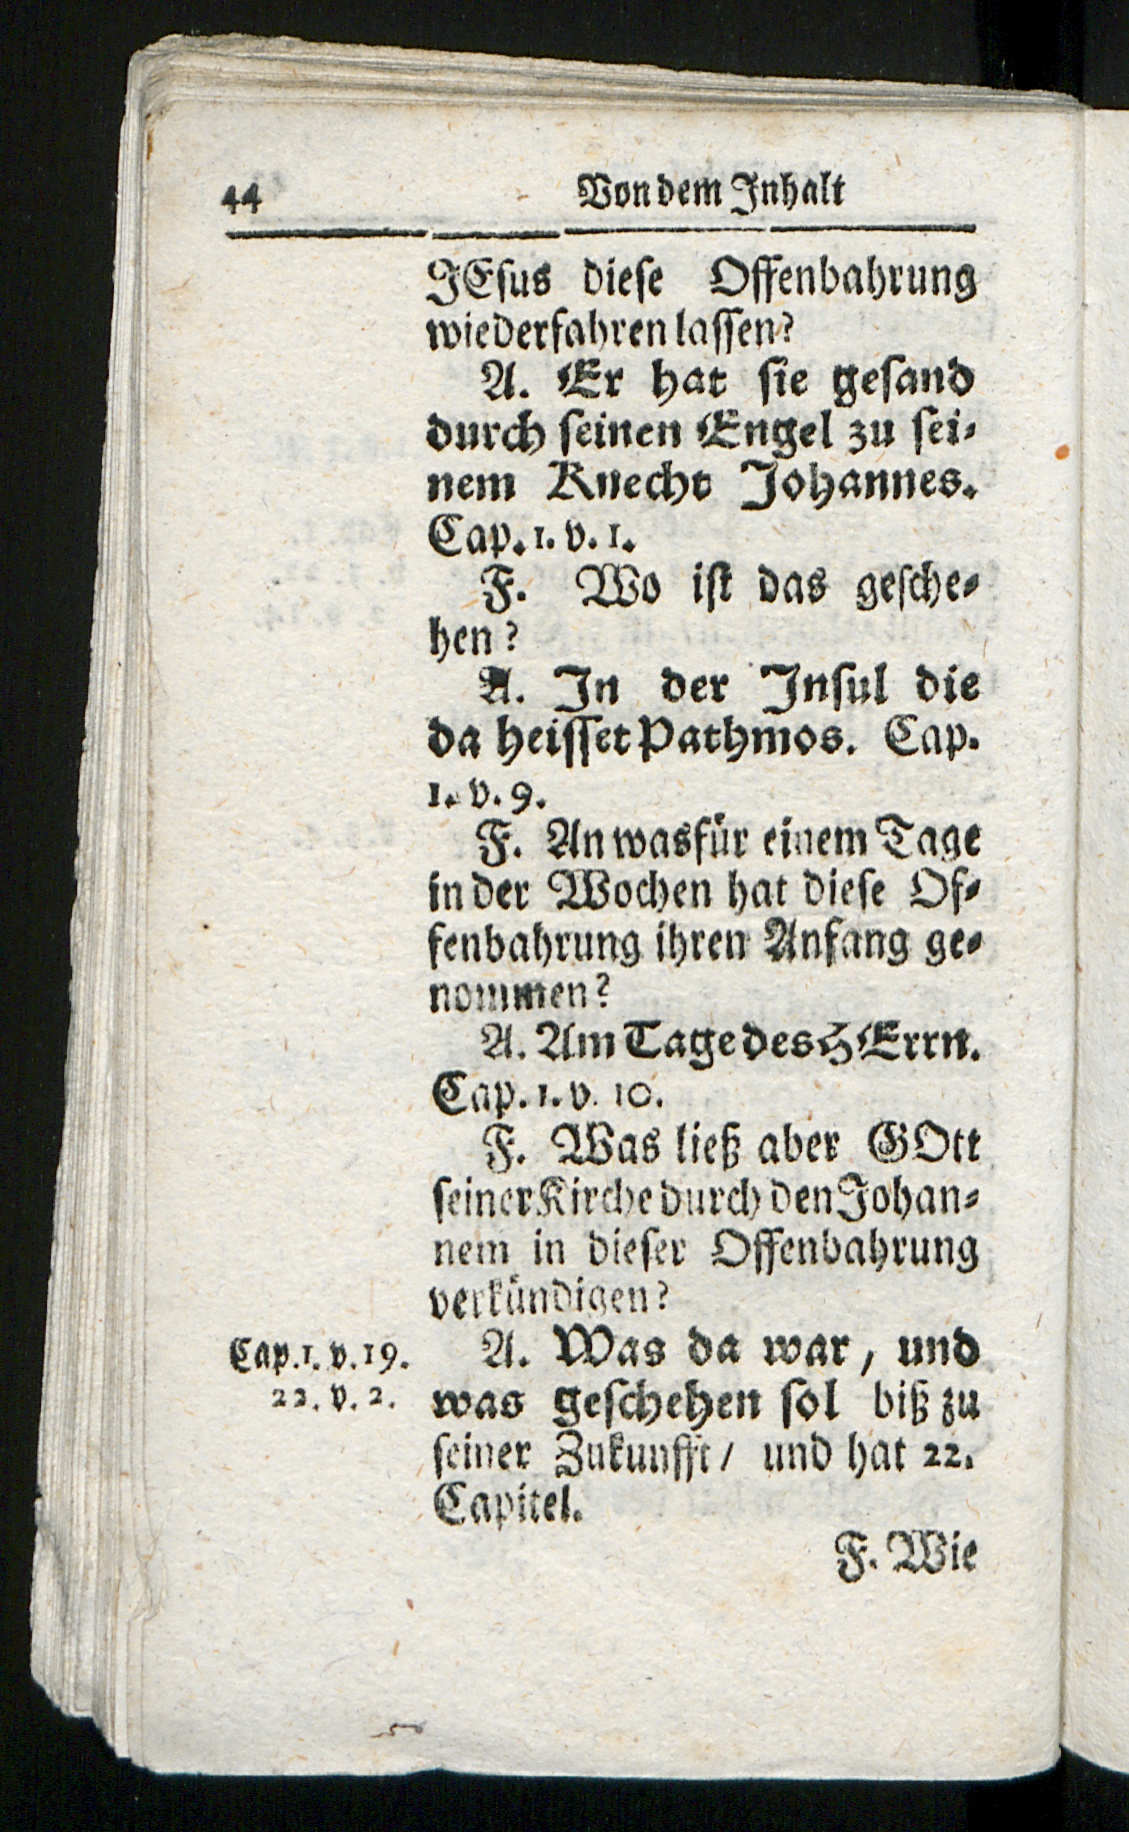 44 Von dem Inhalt
JEsus diese Offenbahrung
wiederfahren lassen?
A. Er hat sie gesand
durch seinen Engel zu sei-
nem Knecht Johannes.
Cap. 1. v. 1.
F. Wo ist das gesche-
hen?
A. In der Insul die
da heisset Pathmos. Cap.
1. v. 9.
F. An wasfür einem Tage
in der Wochen hat diese Of-
fenbahrung ihren Anfang ge-
nommen?
A. Am Tage des HErrn.
Cap. 1. v. 10.
F. Was ließ aber GOtt
seiner Kirche durch den Johan-
nem in dieser Offenbahrung
verkündigen?
Cap. 1. v. 19. A. Was da war, und
22. v. 2. was geschehen sol biß zu
seiner Zukunfft / und hat 22.
Capitel.
F. Wie